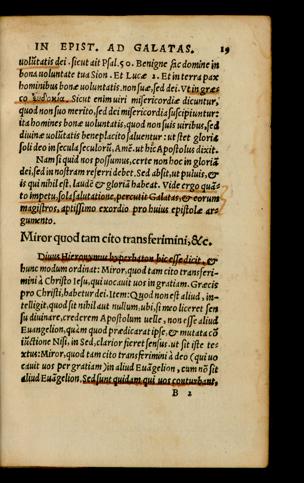 IN EPIST. AD GALATAS. 19
volũtatis dei. sicut ait Psal. 50. Benigne fac domine in
bona voluntate tua Sion. Et Lucæ 2. Et in terra pax
hominibus bonæ voluntatis. non suæ, sed dei. Vt in græ-
co ἐυδοκία. Sicut enim uiri misericordiæ dicuntur,
quod non suo merito, sed dei misericordia suscipiuntur:
ita homines bonæ voluntatis, quod non suis viribus, sed
diuinæ volũtatis beneplacito saluentur: ut stet gloria
soli deo in secula seculorũ, Amẽ. ut hic Apostolus dixit.
Nam si quid nos possumus, certe non hoc in gloriã
dei, sed in nostram referri debet. Sed absit, ut puluis, &
is qui nihil est, laudẽ & gloriã habeat. Vide ergo quã-
to impetu, sola salutatione, percutit Galatas, & eorum
magistros, aptissimo exordio pro huius epistolæ ar-
gumento.
Miror quod tam cito transferimini, &c.
Diuus Hieronymus hyperbaton hic esse dicit, &
hunc modum ordinat: Miror. quod tam cito transferi-
mini à Christo Iesu, qui uocauit uos in gratiam. Græcis
pro Christi, habetur dei. Item: Quod non est aliud, in-
telligit, quod sit nihil aut nullum. ubi, si meo liceret sen
su diuinare, crederem Apostolum uelle, non esse aliud
Euangelion, quàm quod prædicarat ipse, & mutata cõ
iũctione Nisi, in Sed, clarior fieret sensus. ut sit iste te-
xtus: Miror, quod tam cito transferimini à deo (qui uo
cauit uos per gratiam) in aliud Euãgelion, cum nõ sit
aliud Euãgelion. Sed sunt quidam qui uos conturbant,
B 2